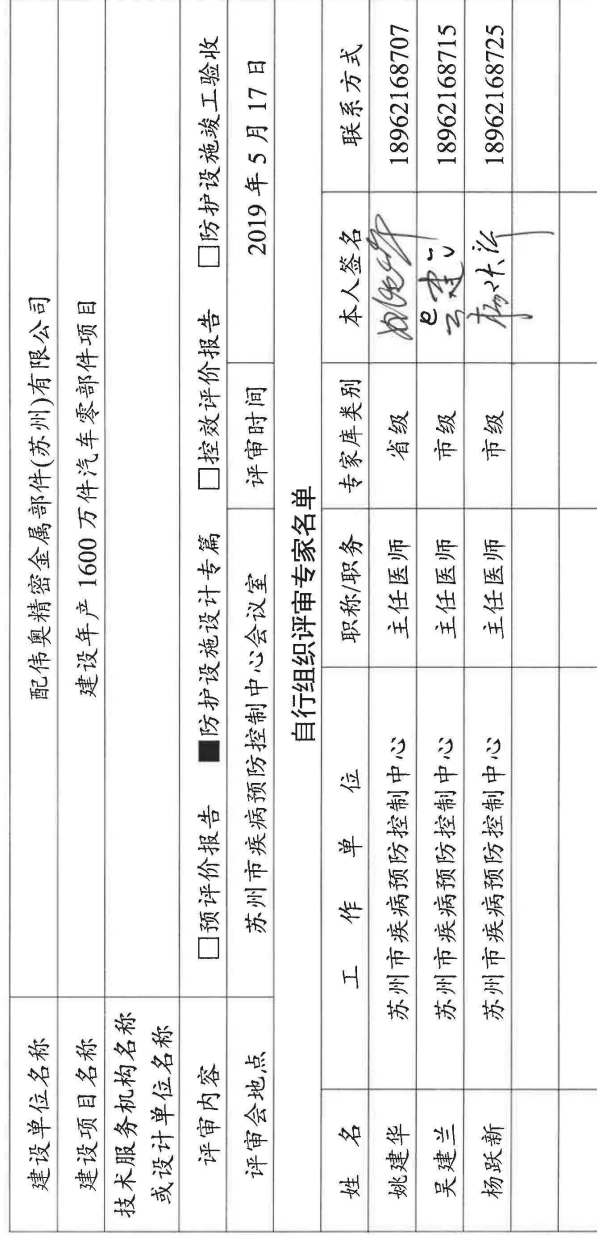 建设单位名称 配伟奥精密金属部件(苏州)有限公司
建设项目名称 建设年产 1600 万件汽车零部件项目
技术服务机构名称
或设计单位名称
评审内容 □预评价报告 ■防护设施设计专篇 □控效评价报告 □防护设施竣工验收
评审会地点 苏州市疾病预防控制中心会议室 评审时间 2019 年 5 月 17 日
自行组织评审专家名单
姓 名 工 作 单 位 职称/职务 专家库类别 本人签名 联系方式
姚建华 苏州市疾病预防控制中心 主任医师 省级 18962168707
吴建兰 苏州市疾病预防控制中心 主任医师 市级 18962168715
杨跃新 苏州市疾病预防控制中心 主任医师 市级 18962168725